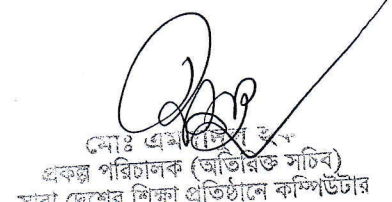 মোঃ
প্রকল্প পরিচালক (অতিরিক্ত সচিব)
সারা দেশের শিক্ষা প্রতিষ্ঠানে কম্পিউটার